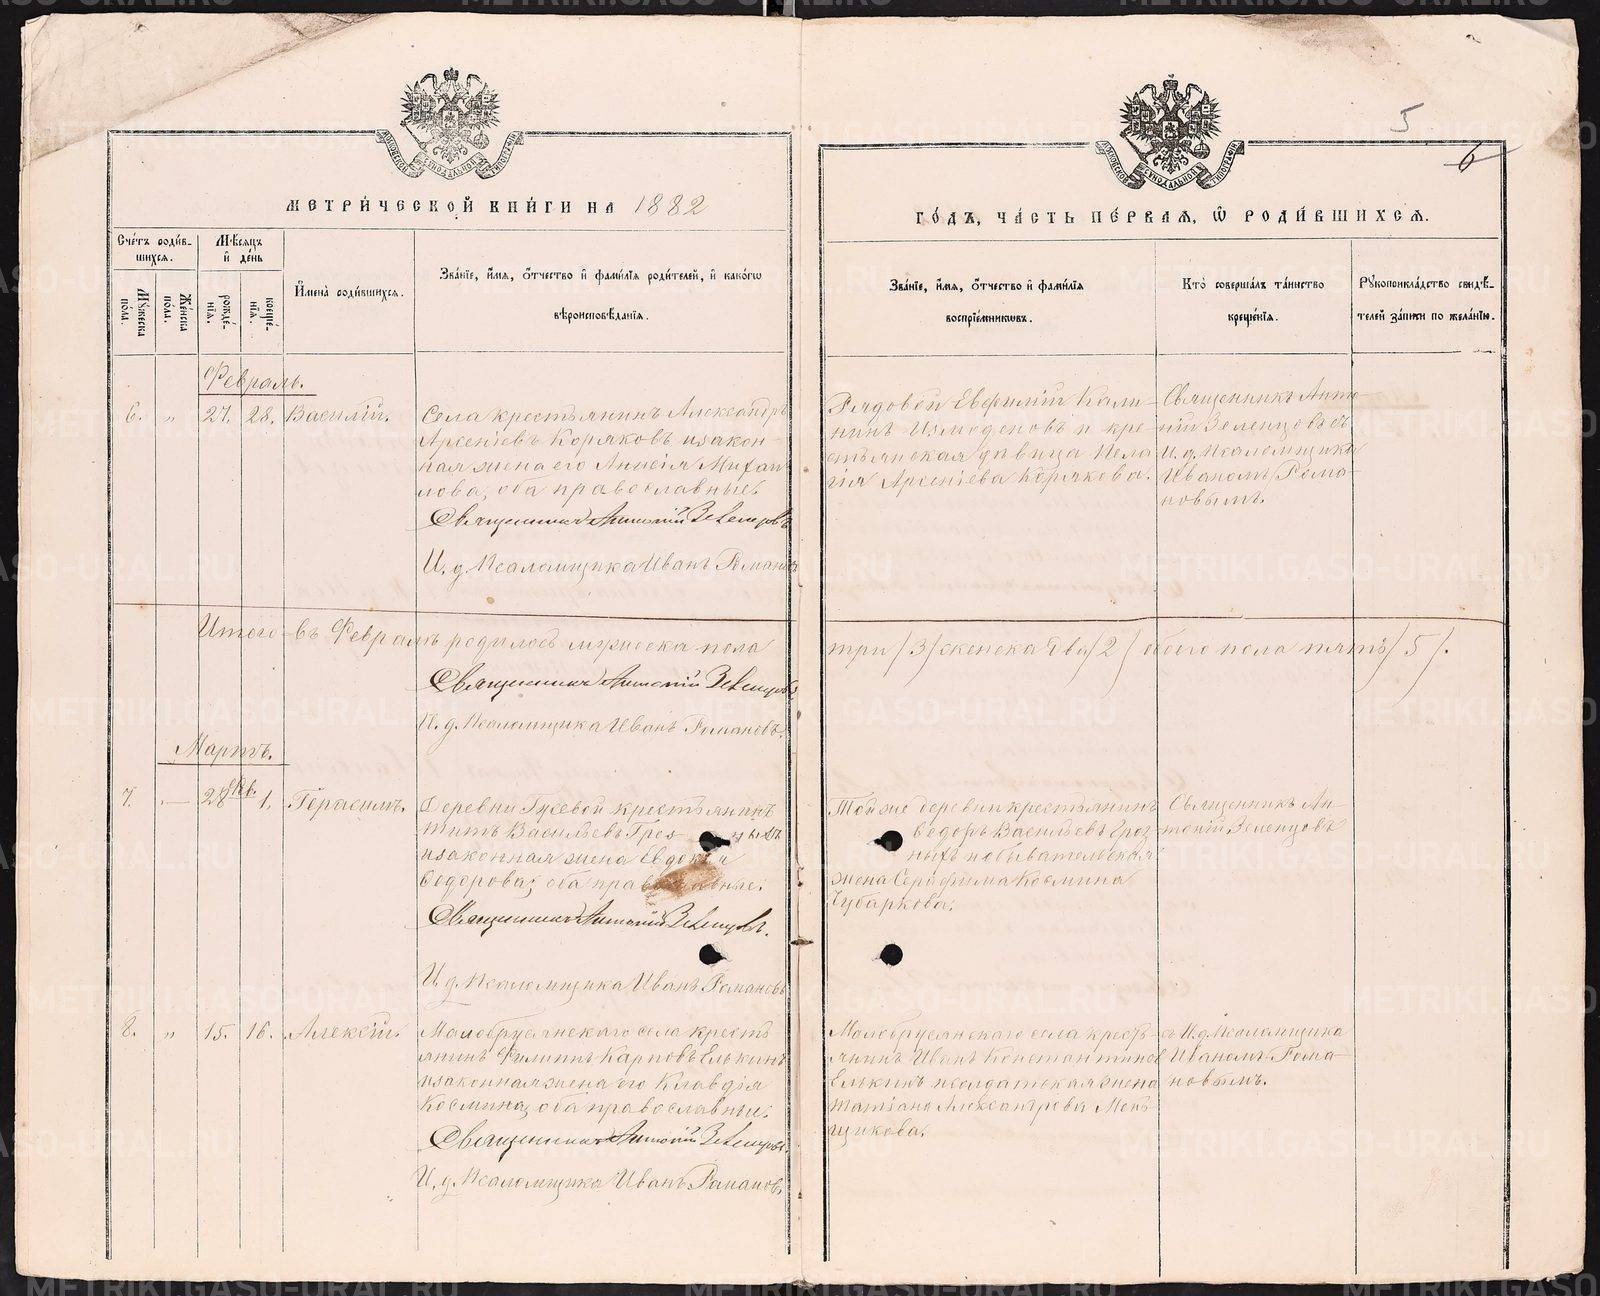 5
6
МЕТРИ́ЧЕСКОЙ КНИ́ГИ НА 1882
ГО́ДЪ, ЧА́СТЬ ПЕ́РВАЯ, Ѡ РОДИ́ВШИХСЯ.
Сче́тъ роди́в-
шихся.
Мѣ́сяцъ
и де́нь
Му́жеска
по́ла.
Же́нска
по́ла.
рожде́-
нія.
креще́-
нія.
Имена̀ роди́вшихся.
Зва́ніе, и́мя, о́тчество и фами́лія роди́телей, и како́гѡ
вѣроисповѣ́данія.
Зва́ніе, и́мя, о́тчество и фами́лія
воспріе́мниковъ.
Кто̀ соверша́лъ та́инство
креще́нія.
Рукоприкла́дство свидѣ́-
телей за́писи по жела́нію.
Февраль.
6. „ 27. 28. Василій.
Села крестьянинъ Александръ
Арсеніевъ Коряковъ и закон-
ная жена его Анисія Михаи
лова, оба православные.
Священникъ Антоній Зеленцовъ
И. д. Псаломщика Иванъ Романовъ
Рядовой Евфимій Кали-
нинъ Измоденовъ и кре-
стьянская дѣвица Пела
гія Арсеніева Корякова.
Священникъ Анто
ній Зеленцовъ съ
И. д. Псаломщика
Иваномъ Рома-
новымъ.
Итого въ Февралѣ родилось мужеска пола
три /3/ женска два /2/ обоего пола пять /5/.
Священникъ Антоній Зеленцовъ
И. д. Псаломщика Иванъ Романовъ.
Мартъ.
7. — 28 Фев. 1. Герасимъ.
Деревни Гусевой крестьянинъ
Титъ Васильевъ Гроз ныхъ
и законная жена Евдокія
Ѳедорова; оба православные.
Священникъ Антоній Зеленцовъ.
И. д. Псаломщика Иванъ Романовъ
Той же деревни крестьянинъ
Ѳедоръ Васильевъ Гроз-
ныхъ и обывательская
жена Серафима Космина
Чубаркова.
Священникъ Ан-
тоній Зеленцовъ
8. „ 15. 16. Алексій.
Малобрусянскаго села кресть
янинъ Филиппъ Карповъ Елькинъ
и законная жена его Клавдія
Космина, оба православные.
Священникъ Антоній Зеленцовъ.
И. д. Псаломщика Иванъ Романовъ.
Малобрусянскаго села кресть-
янинъ Иванъ Константинов
Елькинъ и солдатская жена
Татіана Александрова Мень-
щикова.
съ И. д. Псаломщика
Иваномъ Рома-
новымъ.
METRIKI.GASO-URAL.RU